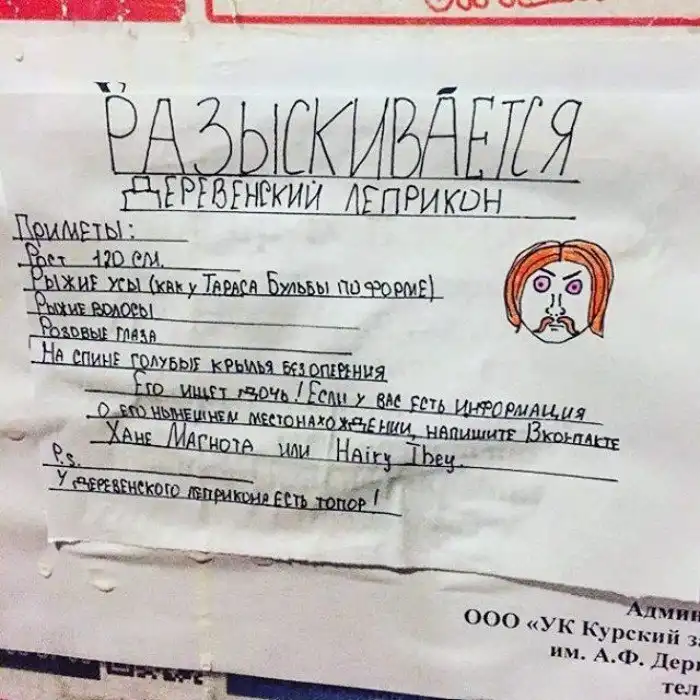 РАЗЫСКИВАЕТСЯ
ДЕРЕВЕНСКИЙ ЛЕПРИКОН
ПРИМЕТЫ:
РОСТ 120 СМ.
РЫЖИЕ УСЫ (КАК У ТАРАСА БУЛЬБЫ ПО ФОРМЕ)
РЫЖИЕ ВОЛОСЫ
РОЗОВЫЕ ГЛАЗА
НА СПИНЕ ГОЛУБЫЕ КРЫЛЬЯ БЕЗ ОПЕРЕНИЯ
ЕГО ИЩЕТ ДОЧЬ! ЕСЛИ У ВАС ЕСТЬ ИНФОРМАЦИЯ
О ЕГО НЫНЕШНЕМ МЕСТОНАХОЖДЕНИИ, НАПИШИТЕ ВКОНТАКТЕ
ХАНЕ МАГНОТА ИЛИ Hairy They.
P.s.
У ДЕРЕВЕНСКОГО ЛЕПРИКОНА ЕСТЬ ТОПОР!
Админ
ООО «УК Курский з
им. А.Ф. Дер
тел